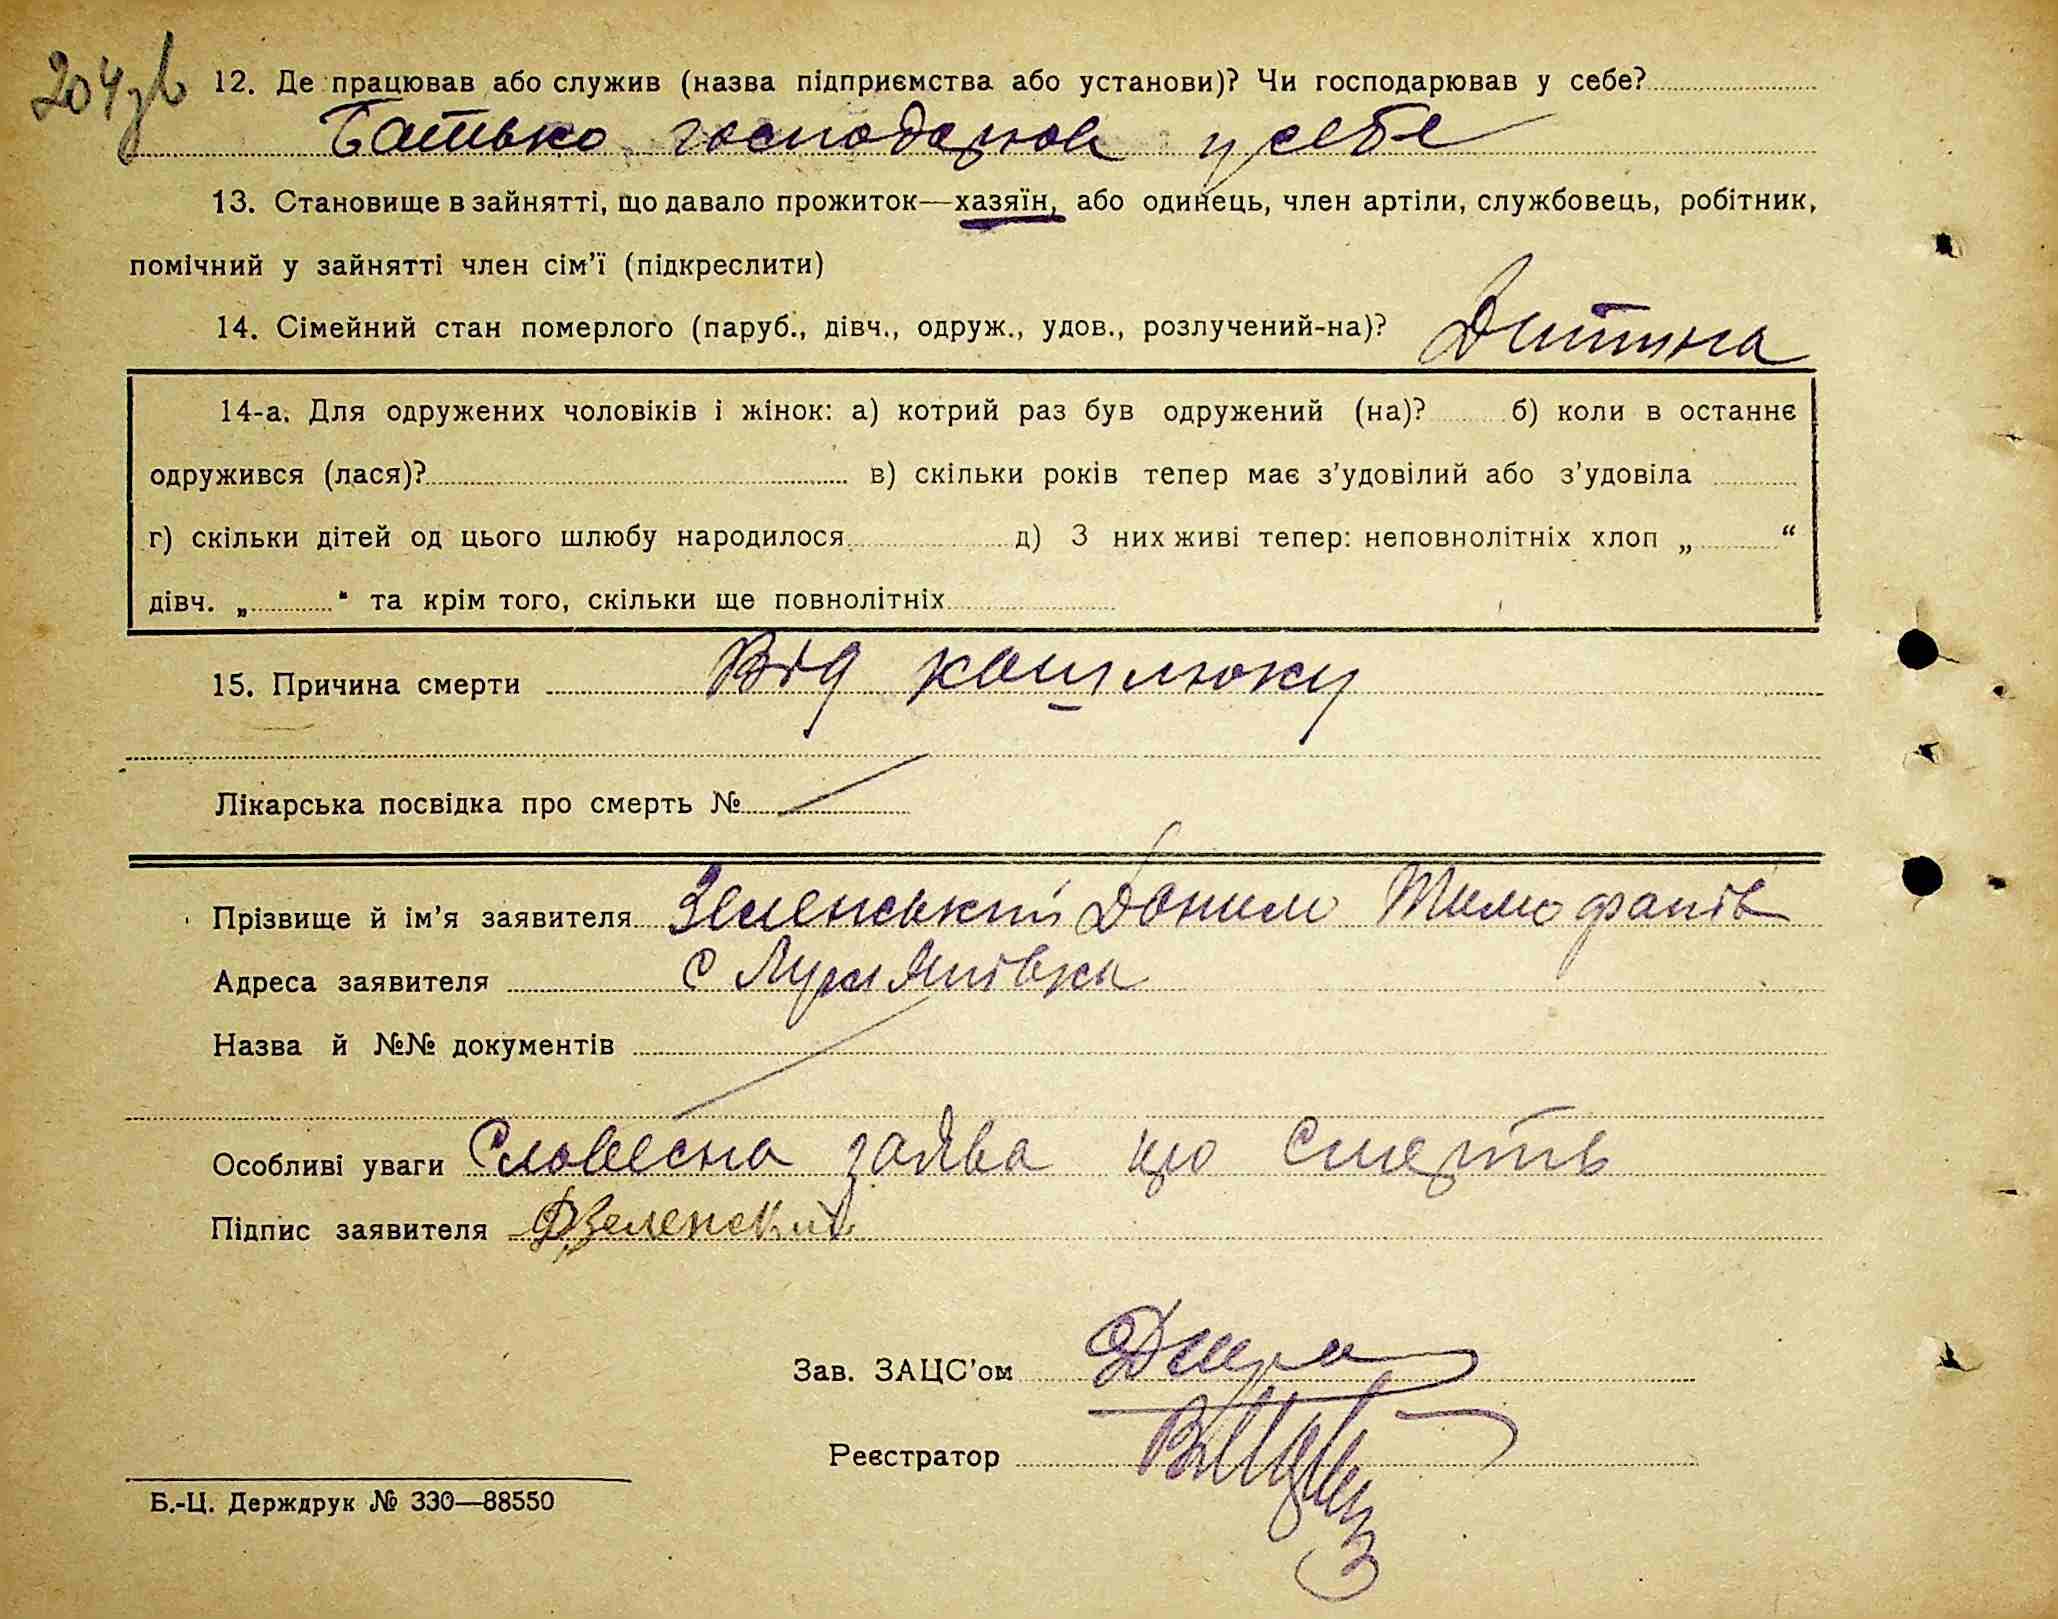 204зв
12. Де працював або служив (назва підприємства або установи)? Чи господарював у себе?
Батько господарюв у себе
13. Становище в зайнятті, що давало прожиток—хазяїн, або одинець, член артіли, службовець, робітник,
помічний у зайнятті член сім’ї (підкреслити)
14. Сімейний стан померлого (паруб., дівч., одруж., удов., розлучений-на)? Дитина
14-а. Для одружених чоловіків і жінок: а) котрий раз був одружений (на)? б) коли в останнє
одружився (лася)? в) скільки років тепер має з’удовілий або з’удовіла
г) скільки дітей од цього шлюбу народилося д) З них живі тепер: неповнолітніх хлоп „ “
дівч. „ “ та крім того, скільки ще повнолітніх
15. Причина смерти Від кашлюку
Лікарська посвідка про смерть №
Прізвище й ім’я заявителя Зеленський Данило Тимофаиів
Адреса заявителя с
Назва й №№ документів
Особливі уваги Словесна заява про смерть
Підпис заявителя ДЗеленский
Зав. ЗАЦС’ом
Реєстратор
Б.-Ц. Держдрук № 330—88550